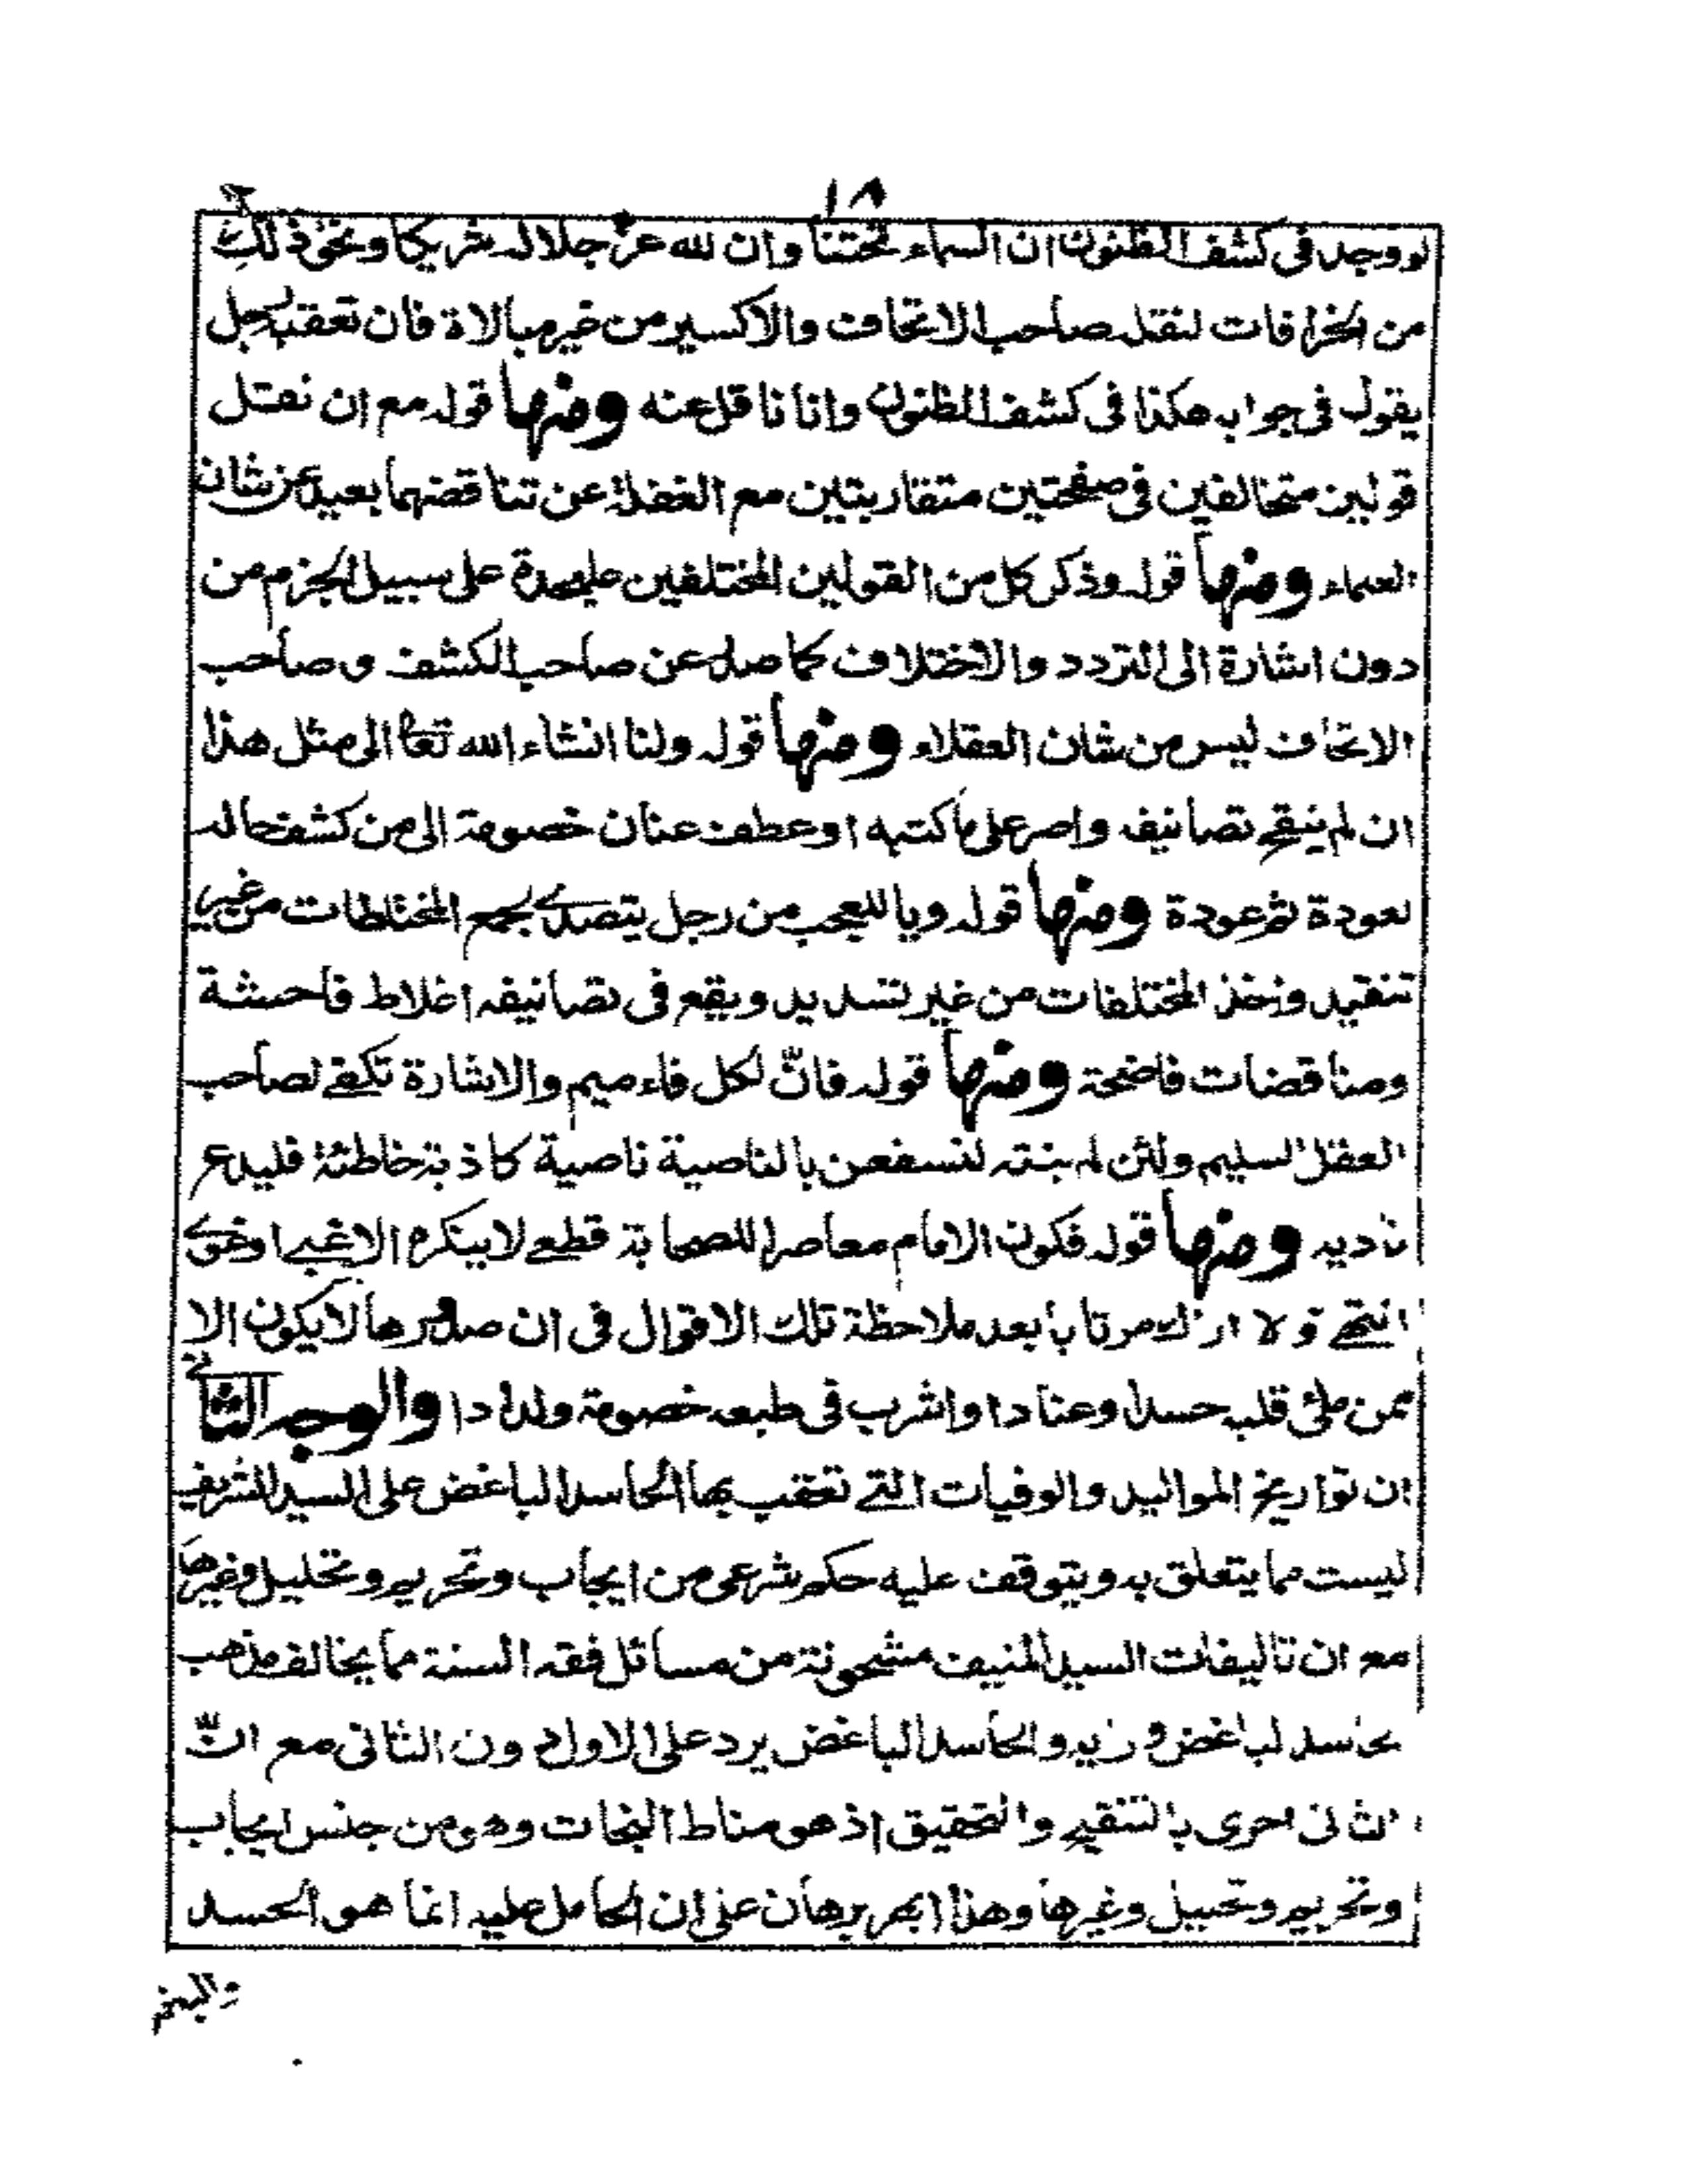 ١٨
لو وجد فى كشف الظنون ان السماء تحتنا وان لله عز جلاله شريكا ونحو ذلك
من الخرافات لنقله صاحب الاتحاف والاكسير من غير مبالاة فان تعقبه رجل
يقول فى جوابه هكذا فى كشف الظنون وانا ناقل عنه ومنها قوله مع ان نقل
قولين متخالفين فى صفحتين متقاربتين مع الغفلة عن تناقضهما بعيد عن شان
العلماء ومنها قوله وذكر كل من القولين المختلفين عليحدة على سبيل الجزم من
دون اشارة الى التردد والاختلاف كما صدر عن صاحب الكشف وصاحب
الاتحاف ليس من شان العقلاء ومنها قوله ولنا انشاء الله تعا الى مثل هذا
ان لم ينقح تصانيفه واصر على ما كتبه او عطف عنان خصومة الى من كشف حاله
لعودة ثم عودة ومنها قوله ويا للعجب من رجل يتصدى لجمع المختلطات من غير
تنقيد واخذ المختلفات من غير تسديد ويقع فى تصانيفه اغلاط فاحشة
ومناقضات فاضحة ومنها قوله فانّ لكل فاء ميم والاشارة تكفى لصاحب
العقل السليم ولئن لم ينته لنسفعن بالناصية ناصية كاذبة خاطئة فليدع
ناديه ومنها قوله فكون الامام معاصرا للصحابة قطعى لا ينكره الا غبى او غوى
انتهى ولا اراك مرتابا بعد ملاحظة تلك الاقوال فى ان صدورها لا يكون الا
ممن ملئ قلبه حسدا وعنادا واشرب فى طبعه خصومة ولدادا والوجه الثانى
ان تواريخ المواليد والوفيات التى تعقب بها الحاسد الباغض على السيد الشريف
ليست مما يتعلق به ويتوقف عليه حكم شرعى من ايجاب وتحريم وتحليل وغيرها
مع ان تاليفات السيد المنيف مشحونة من مسائل فقه السنة مما يخالف مذهب
الحاسد الباغض وزيد والحاسد الباغض يرد على الاول دون الثانى مع انّ
الثانى احرى بالتنقيح والتحقيق اذ هو مناط النجات وهو من جنس ايجاب
وتحريم وتحليل وغيرها وهذا ابهر برهان على ان الحامل عليه انما هو الحسد